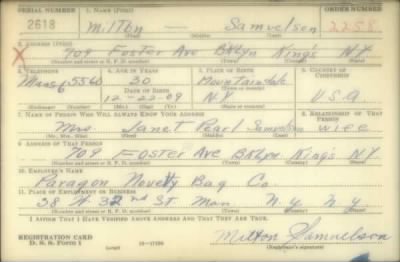 SERIAL NUMBER 1. NAME (Print) ORDER NUMBER
2618 Milton — Samuelson 2258
(First) (Middle) (Last)
2. ADDRESS (Print)
X 709 Foster Ave Bklyn Kings N.Y.
(Number and street or R. F. D. number) (Town) (County) (State)
3. TELEPHONE 4. AGE IN YEARS 5. PLACE OF BIRTH 6. COUNTRY OF CITIZENSHIP
Mans 6 5560 30 Mountaindale
DATE OF BIRTH (Town or county)
12-22-09 N.Y. U.S.A.
(Exchange) (Number) (Mo.) (Day) (Yr.) (State or country)
7. NAME OF PERSON WHO WILL ALWAYS KNOW YOUR ADDRESS 8. RELATIONSHIP OF THAT PERSON
Mrs. Janet Pearl Samuelson wife
(Mr., Mrs., Miss) (First) (Middle) (Last)
9. ADDRESS OF THAT PERSON
709 Foster Ave Bklyn Kings NY
(Number and street or R. F. D. number) (Town) (County) (State)
10. EMPLOYER'S NAME
Paragon Novelty Bag Co.
11. PLACE OF EMPLOYMENT OR BUSINESS
38 W 32nd St Man N.Y. N.Y.
(Number and street or R. F. D. number) (Town) (County) (State)
I AFFIRM THAT I HAVE VERIFIED ABOVE ANSWERS AND THAT THEY ARE TRUE.
REGISTRATION CARD
D. S. S. Form 1 Milton Samuelson
(Registrant's signature)